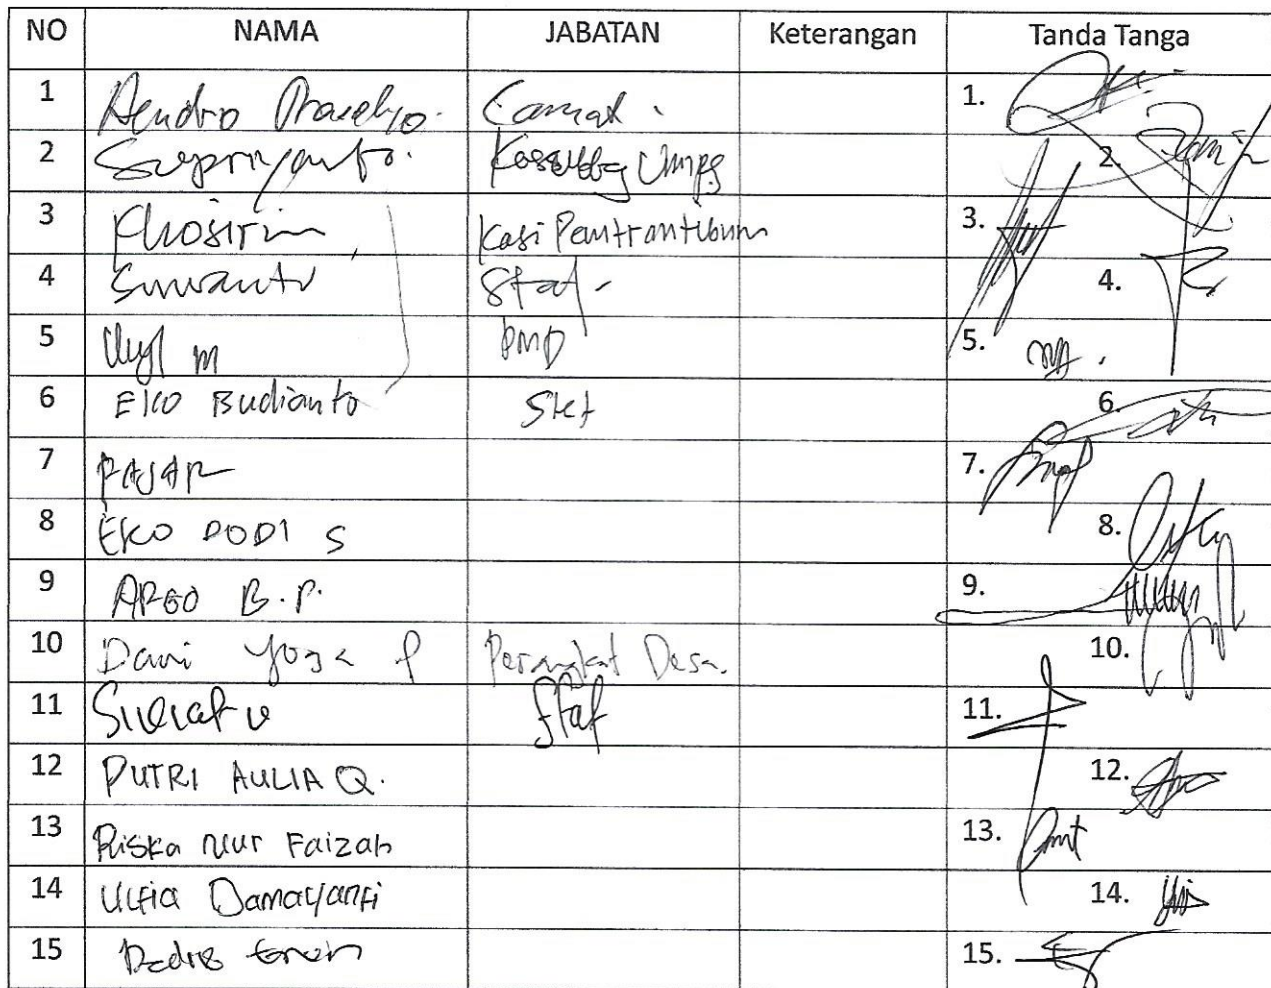 NO NAMA JABATAN Keterangan Tanda Tanga
1 Hendro Prasetyo. Camat. 1.
2 Supriyanto. Kasubbag Umpeg 2.
3 Khosirin Kasi Pemtrantibum 3.
4 Suwanto Staf- 4.
5 m PMD 5.
6 EKO Budianto Staf 6.
7 FAJAR 7.
8 EKO DODI S 8.
9 ARGO B.P. 9.
10 Dani Yoga P Perangkat Desa. 10.
11 Staf 11.
12 PUTRI AULIA Q. 12.
13 Riska Nur Faizah 13.
14 Ulfia Damayanti 14.
15 15.